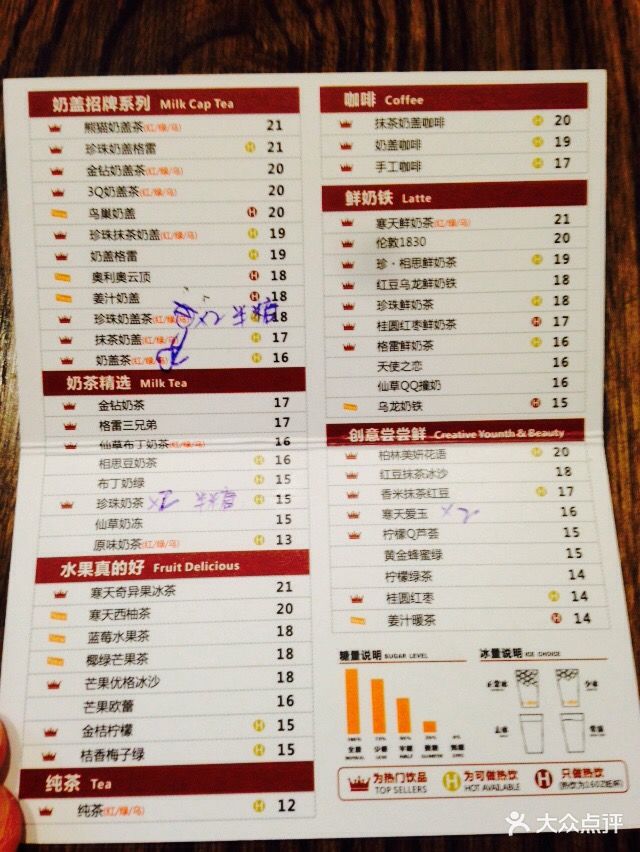 奶盖招牌系列 Milk Cap Tea
熊猫奶盖茶(红/绿/乌) 21
珍珠奶盖格雷 H 21
金钻奶盖茶(红/绿/乌) 20
3Q奶盖茶(红/绿/乌) 20
鸟巢奶盖 H 20
珍珠抹茶奶盖(红/绿/乌) H 19
奶盖格雷 H 19
奥利奥云顶 H 18
姜汁奶盖 H 18
珍珠奶盖茶(红/绿/乌) H 18
抹茶奶盖(红/绿/乌) H 17
奶盖茶(红/绿/乌) H 16
奶茶精选 Milk Tea
金钻奶茶 17
格雷三兄弟 17
仙草布丁奶茶(红/绿/乌) 16
相思豆奶茶 H 16
布丁奶绿 H 15
珍珠奶茶 H 15
仙草奶冻 15
原味奶茶(红/绿/乌) H 13
水果真的好 Fruit Delicious
寒天奇异果冰茶 21
寒天西柚茶 20
蓝莓水果茶 18
椰绿芒果茶 18
芒果优格冰沙 18
芒果欧蕾 16
金桔柠檬 H 15
桔香梅子绿 H 15
纯茶 Tea
纯茶(红/绿/乌) H 12
咖啡 Coffee
抹茶奶盖咖啡 H 20
奶盖咖啡 H 19
手工咖啡 H 17
鲜奶铁 Latte
寒天鲜奶茶(红/绿/乌) 21
伦敦1830 20
珍·相思鲜奶茶 H 19
红豆乌龙鲜奶铁 18
珍珠鲜奶茶 H 18
桂圆红枣鲜奶茶 H 17
格雷鲜奶茶 H 16
天使之恋 16
仙草QQ撞奶 16
乌龙奶铁 H 15
创意尝尝鲜 Creative Younth & Beauty
柏林美妍花语 H 20
红豆抹茶冰沙 18
香米抹茶红豆 H 17
寒天爱玉 2x 16
柠檬Q芦荟 15
黄金蜂蜜绿 15
柠檬绿茶 14
桂圆红枣 H 14
姜汁暖茶 H 14
糖量说明 SUGAR LEVEL
冰量说明 ICE CHOICE
正常冰 少冰
去冰 常温
全糖 少糖 半糖 微糖 无糖
为热门饮品 H 为可做热饮 H 只做热饮
TOP SELLERS HOT AVAILABLE (热饮为16OZ纸杯)
大众点评